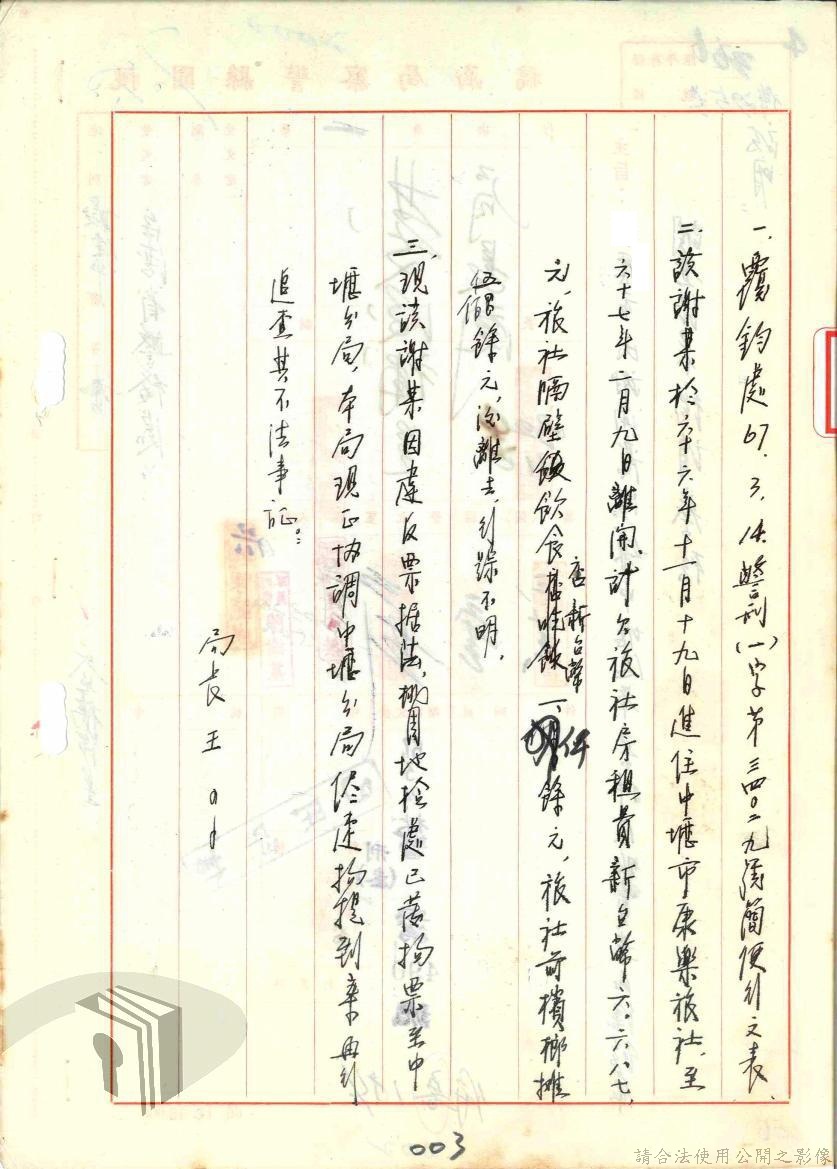 一、覆鈞處67.3.14.警刑(一)字第三四〇二九號簡便行文表。
二、該謝某於六十六年十一月十九日進住中壢市康樂旅社,至
六十七年二月九日離開,計欠旅社房租費新台幣六、六八七、
元,旅社隔壁飲食店吃飲新台幣一仟餘元,旅社前檳榔攤
伍佰餘元,後離去,行踪不明。
三、現該謝某因違反票據法,桃園地檢處已發拘票至中
壢分局,本局現正協調中壢分局儘速拘提到案再行
追查其不法事証。
局長 王
003
請合法使用公開之影像